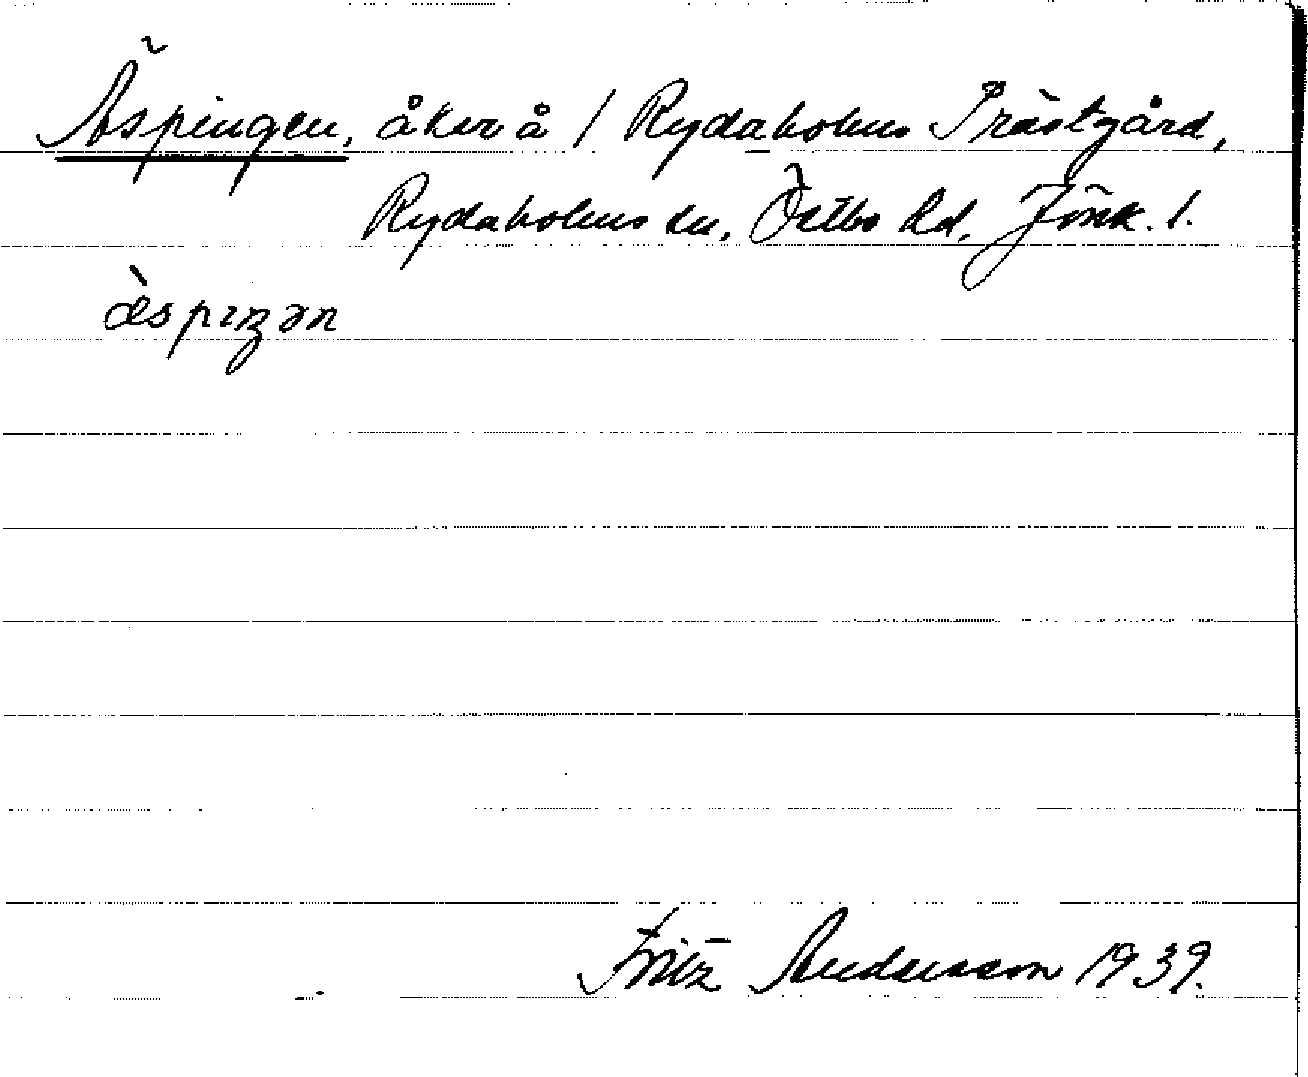 Äspingen, åker å / Rydaholms Prästgård,
Rydaholms sn, Östbo hd, Jönk. l.
æ̀spɪŋən
Fritz Andersson 1939.